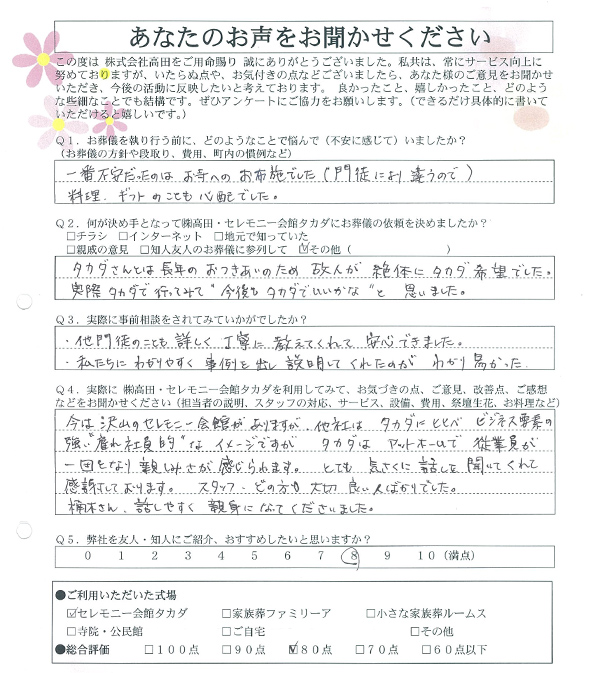 あなたのお声をお聞かせください
この度は 株式会社高田をご用命賜り 誠にありがとうございました。私共は、常にサービス向上に
努めておりますが、いたらぬ点や、お気付きの点などございましたら、あなた様のご意見をお聞かせ
いただき、今後の活動に反映したいと考えております。 良かったこと、嬉しかったこと、どのよう
な些細なことでも結構です。ぜひアンケートにご協力をお願いします。（できるだけ具体的に書いて
いただけると嬉しいです。）
Ｑ１．お葬儀を執り行う前に、どのようなことで悩んで（不安に感じて）いましたか？
（お葬儀の方針や段取り、費用、町内の慣例など）
一番不安だったのは お寺へのお布施でした（門徒により違うので）
料理、ギフトのことも心配でした。
Ｑ２．何が決め手となって㈱高田・セレモニー会館タカダにお葬儀の依頼を決めましたか？
□チラシ □インターネット □地元で知っていた
□親戚の意見 □知人友人のお葬儀に参列して ☑その他（ ）
タカダさんとは長年のおつきあいのため 故人が 絶体にタカダ希望でした。
実際タカダで行ってみて“今後もタカダでいいかな”と 思いました。
Ｑ３．実際に事前相談をされてみていかがでしたか？
・他門徒のことも詳しく丁寧に教えてくれて 安心できました。
・私たちにわかりやすく 事例を出し説明してくれたのが わかり易かった
Ｑ４．実際に ㈱高田・セレモニー会館タカダを利用してみて、お気づきの点、ご意見、改善点、ご感想
などをお聞かせください（担当者の説明、スタッフの対応、サービス、設備、費用、祭壇生花、お料理など）
今は沢山のセレモニー会館がありますが、他社は タカダにくらべ ビジネス要素の
強い“雇れ社員的”な イメージですが タカダは アットホームで 従業員が
一団となり親しみさが感じられます。 とても 気さくに 話しを 聞いてくれて
感謝しております。 スタッフ・どの方も 大切 良い人ばかりでした。
楠木さん、話しやすく 親身になってくださいました。
Ｑ５．弊社を友人・知人にご紹介、おすすめしたいと思いますか？
０ １ ２ ３ ４ ５ ６ ７ ８ ９ １０（満点）
●ご利用いただいた式場
☑セレモニー会館タカダ □家族葬ファミリーア □小さな家族葬ルームス
□寺院・公民館 □ご自宅 □その他
●総合評価 □１００点 □９０点 ☑８０点 □７０点 □６０点以下